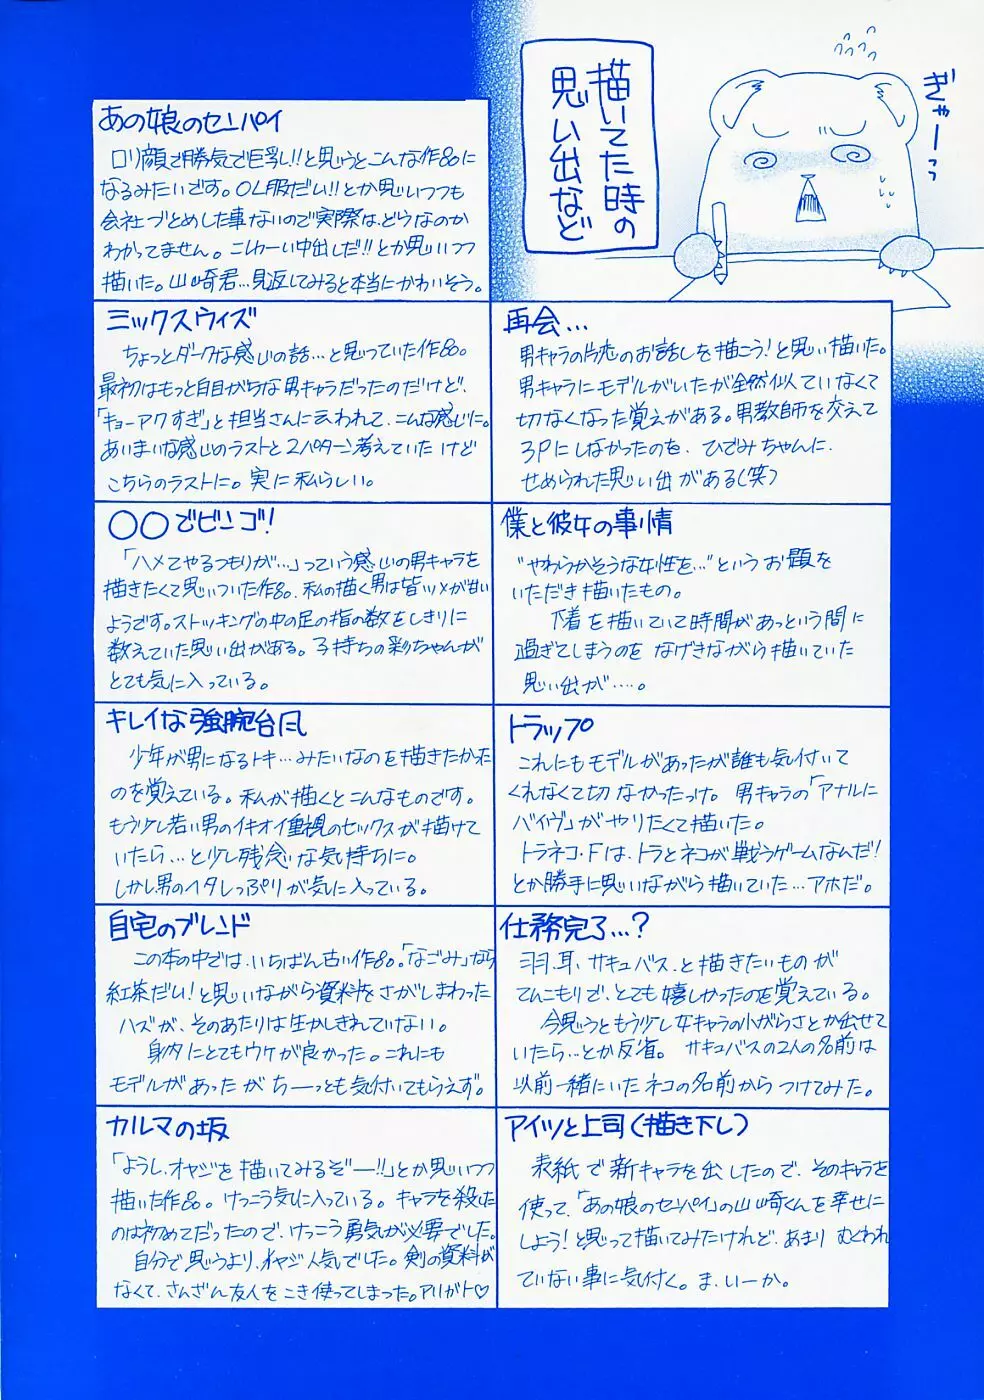 描いてた時の
思い出など
ぎゃーっっ
あの娘のセンパイ
ロリ顔で勝気で巨乳!!と思うとこんな作品に
なるみたいです。OL服だい!!とか思いつつも
会社づとめした事ないので実際は、どうなのか
わかってません。こしかーい中出しだ!!とか思いつつ
描いた。山崎君…見返してみると本当にかわいそう。
ミックスウィズ
ちょっとダークな感じの話…と思っていた作品。
最初はもっと自目がちな男キャラだったのだけど、
「キョーアクすぎ」と担当さんに云われて、こんな感じに。
あいまいな感じのラストと2パターン考えていたけど
こちらのラストに。実に私らしい。
再会…
男キャラの片恋のお話しを描こう!と思い描いた。
男キャラにモデルがいたが全然似ていなくて
切なくなった覚えがある。男教師を交えて
3Pにしなかったのを、ひでみちゃんに、
せめられた思い出がある(笑)
○○でビンゴ!
「ハメてやるつもりが…」っていう感じの男キャラを
描きたくて思いついた作品。私の描く男は皆ツメが甘い
ようです。ストッキングの中の足の指の数をしきりに
数えていた思い出がある。子持ちの彩ちゃんが
とても気に入っている。
僕と彼女の事情
"やわらかそうな女性を…"というお題を
いただき描いたもの。
下着を描いていて時間があっという間に
過ぎてしまうのをなげきながら描いていた
思い出が….。
キレイな強腕台風
少年が男になるトキ…みたいなのを描きたかった
のを覚えている。私が描くとこんなものです。
もう少し若い男のイキオイ重視のセックスが描けて
いたら…と少し残念な気持ちに。
しかし、男のヘタレっぷりが気に入っている。
トラップ
これにもモデルがあったが誰も気付いて
くれなくて切なかったっけ。男キャラの「アナルに
バイヴ」がやりたくて描いた。
トラネコ・Fは、トラとネコが戦うゲームなんだ!
とか勝手に思いながら描いていた…アホだ。
自宅のブレンド
この本の中では、いちばん古い作品。「なごみ」なら
紅茶だい!と思いながら資料をさがしまわった
ハズが、そのあたりは生かしきれていない。
身内にとてもウケが良かった。これにも
モデルがあったがちーっとも気付いてもらえず。
仕務完了…?
羽、耳、サキュバス、と描きたいものが
てんこもりで、とても嬉しかったのを覚えている。
今思うともう少し女キャラの小がらさとか出せて
いたら…とか反省。サキュバスの2人の名前は
以前一緒にいたネコの名前からつけてみた。
カルマの坂
「ようし、オヤジを描いてみるぞー!!」とか思いつつ
描いた作品。けっこう気に入っている。キャラを殺した
のは初めてだったので、けっこう勇気が必要でした。
自分で思うより、オヤジ人気でした。剣の資料が
なくて、さんざん友人をこき使ってしまった。アリガト♡
アイツと上司(描き下し)
表紙で新キャラを出したので、そのキャラを
使って、「あの娘のセンパイ」の山崎くんを幸せに
しよう!と思って描いてみたけれど、あまりむくわれ
ていない事に気付く。ま、いーか。